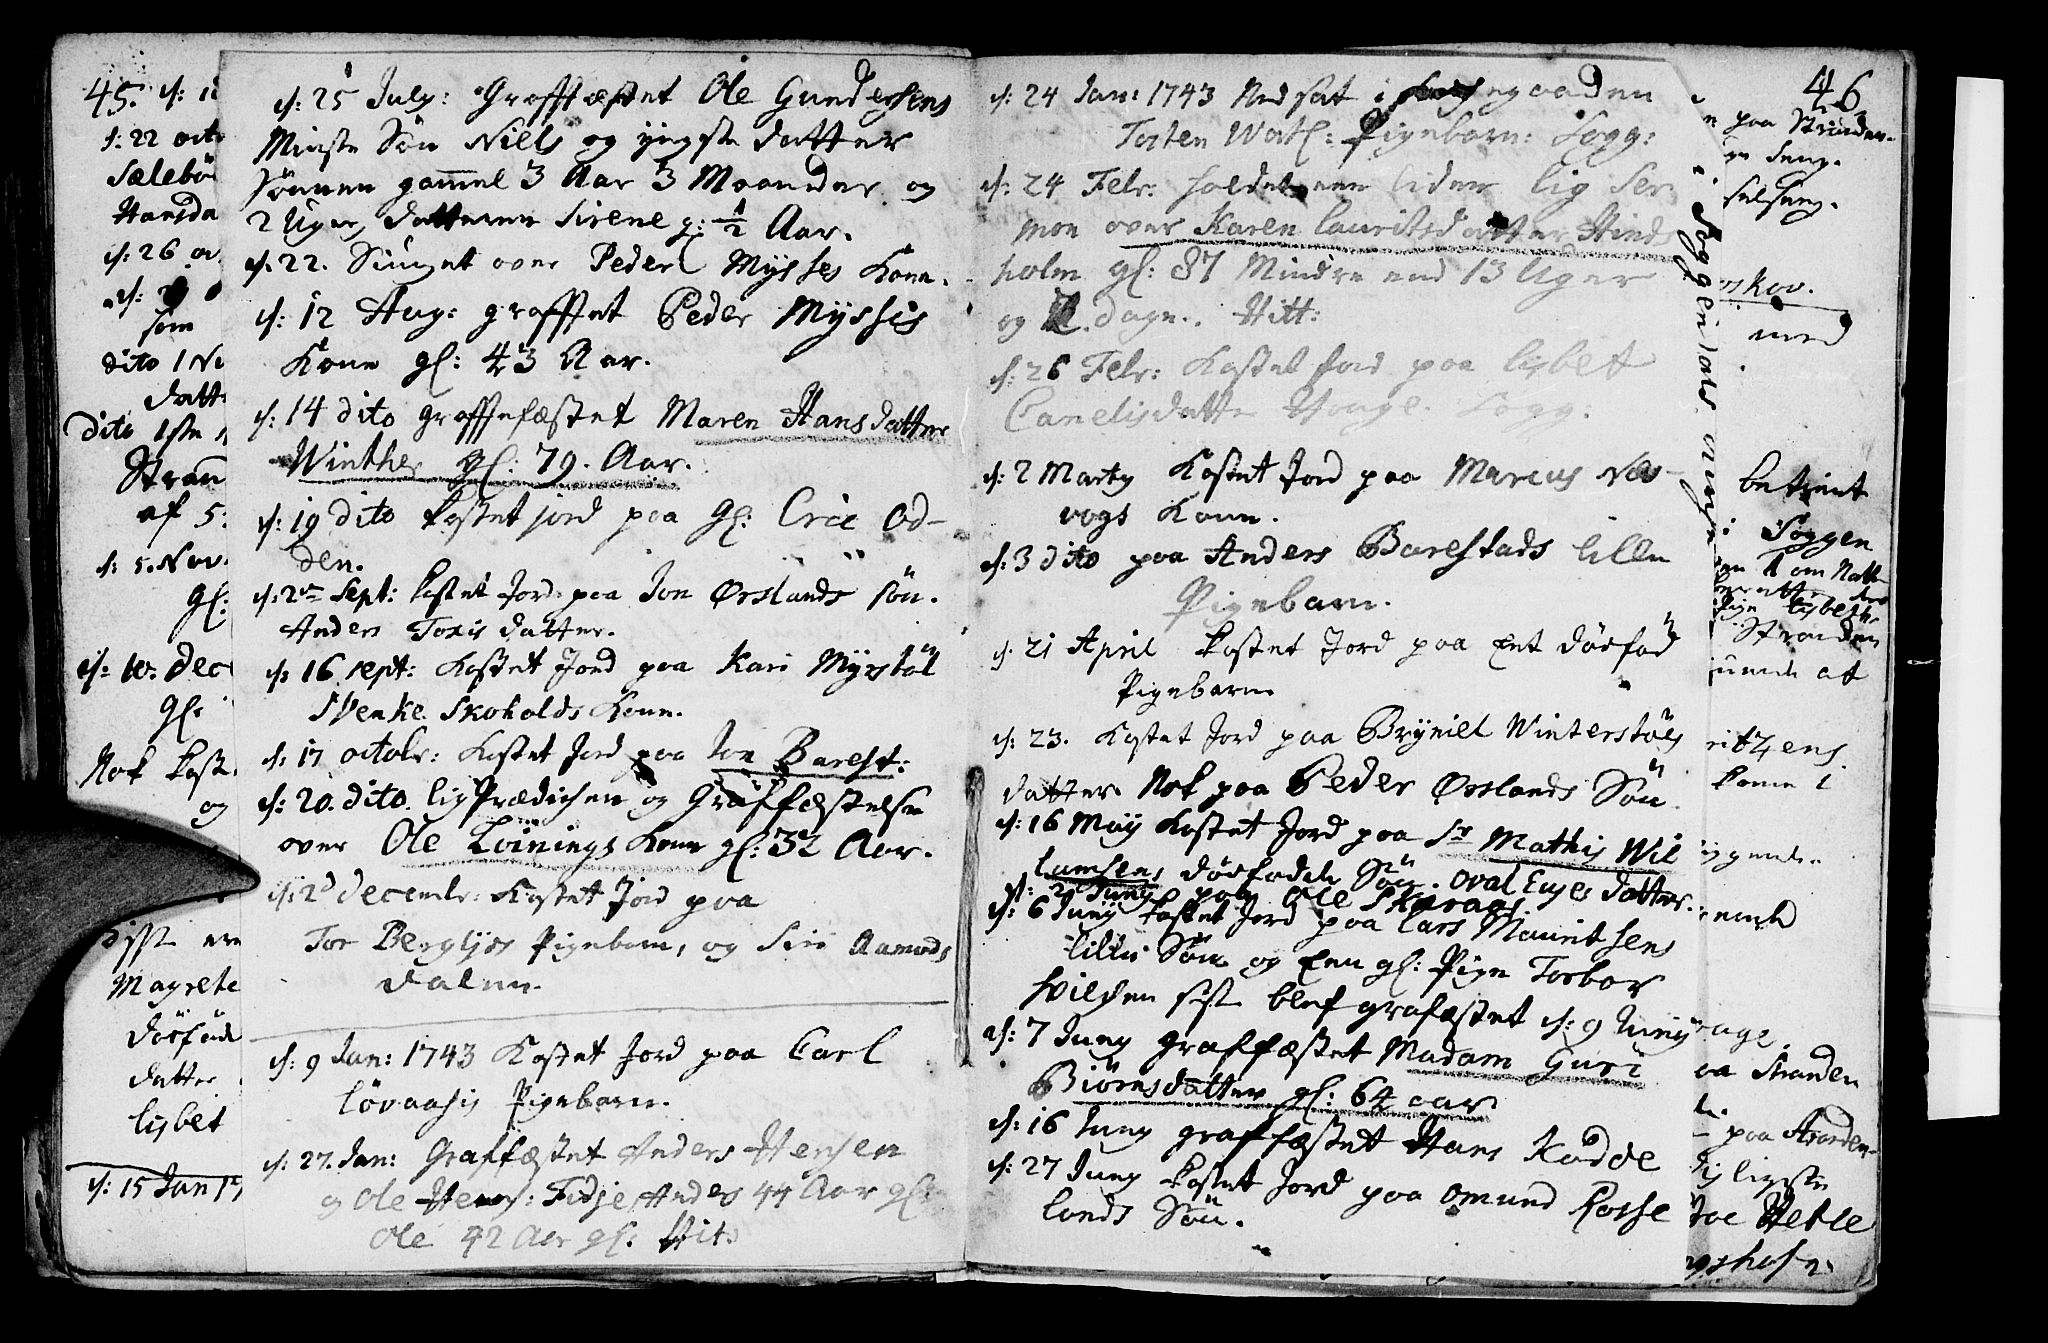 45.
d: 22 octo
Sælebö
Hansda
d: 26
som
dito 1 No
datt
dito 1ste
Stran
af 5:
d: 5. Nov.
gl:
d: 10. Dec
gl:
Nok kast
og
Magrete
dösföd
datter
lisbet
d: 15 Jan 17
d: 25 July: Graffæstet Ole Gundersens
Minste Sön Nills og yngste datter
sönnen gammel 3 Aar 3 Maaneder og
2 Uger, datteren Sirene g: ½ Aar.
d. 22. Siunget over Peder Mysses Kone.
d: 12 Aug: graffæstet Peder Myssis
Kone gl: 43 Aar.
d: 14 dito graffefæstet Maren Hansdatter
Winther gl: 79. Aar.
d: 19 dito kastet jord paa gl: Eric Od-
den.
d: 2den Sept: kastet Jord paa Jon Ørslands sön.
Anders Toxis datter.
d: 16 sept: Kastet Jord paa Kari Myrstöl
Svenke Skoholds Kone.
d: 17 octobr: Kastet Jord paa Jon Barest:
d: 20. dito. ligPrædichen og Graffæstelse
over Ole Löinings Kone gl: 32 Aar.
d: 2d decembr: Kastet Jord paa
Tor Berglies Pigebarn, og Siri Aamods
dalen.
d: 9 Jan: 1743 Kastet Jord paa Carl
lövaasis Pigebarn.
d: 27. Jan: Graffæstet Anders Hersen
og Ole Hers: Fidje Anders 44 Aar gl:
Ole 42 Aar gl: Hit:
d: 24 Jan: 1743 Ned sat i
Torten Pigebarn: Sogg:
d: 24 Febr: holdet een liden lig Ser
mon over Karen lauritsdatter Hinds
holm gl: 87 Mindre end 13 Uger
og 2. dage. Hitt:
d: 26 Febr: Kastet Jord paa lisbet
Canelisdatter Houge. Sogg.
d: 2 Marty Kastet Jord paa Marcus Nes-
vogs Kone.
d: 3 dito paa Anders Barestads lille
Pigebarn.
d: 21 April kastet Jord paa Eet dösfød
Pigebarn
d: 23. Kastet Jord paa Bryniel Winterstöls
datter. Nok paa Peder Ørslands Sön
d: 16 May Kastet Jord paa Sr Mathis Wil
lumsens dösfödde Sön. Oval Euses datter.
d: 2 Juny paa Ole Skaraas.
d: 6 Juny kastet Jord paa lars Mauritsens
lille Sön og Een gl: Pige Torbor
hvilchen sist blef grafæstet d: 9 Juny
d: 7 Juny graffæstet Madam Guri
Biörnsdatter gl: 64 aar
d: 16 Juny graffæstet Hans Kadde
d: 27 Juny kastet Jord paa Omund Rosse
lands Sön.
46
paa Stranden
Seng.
i Soggendals
skov.
med
betient
i Soggen
om Natt
Pige lisbeth
Stranden
at
ritzens
komme i
Stranden
paa Stranden
ligste
Hetle